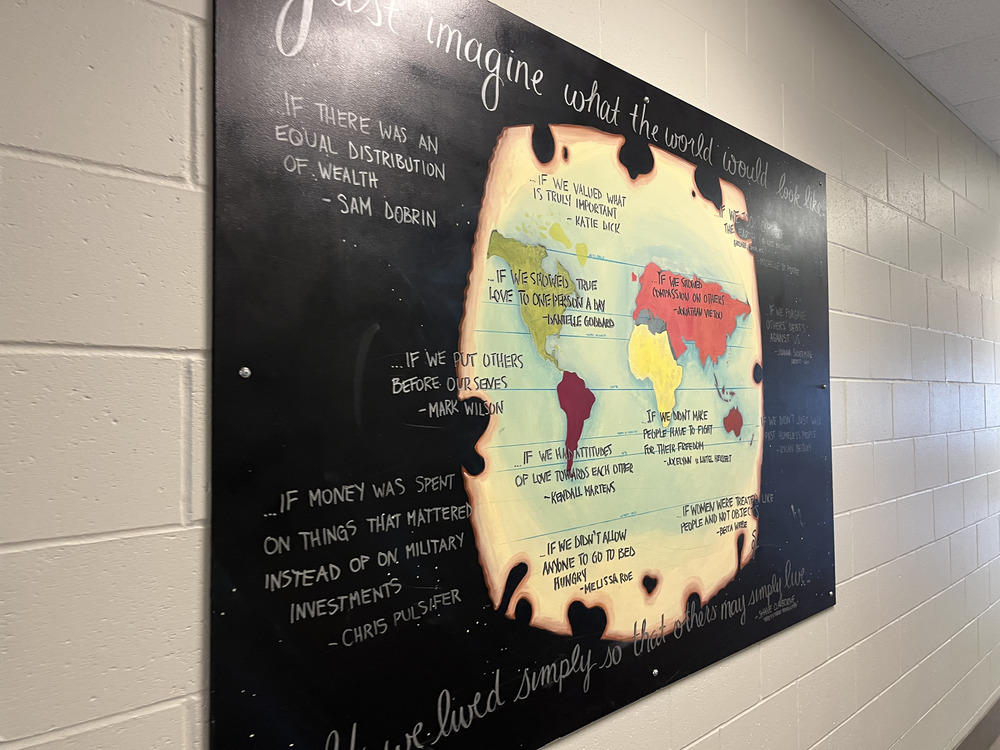 Just imagine what the world would look like...
...IF THERE WAS AN
EQUAL DISTRIBUTION
OF WEALTH
- SAM DOBRIN
...IF WE VALUED WHAT
IS TRULY IMPORTANT
- KATIE DICK
...IF WE SHOWED TRUE
LOVE TO ONE PERSON A DAY
- DANIELLE GODDARD
...IF WE SHOWED
COMPASSION ON OTHERS
- JONATHAN VIETOU
IF WE FORGAVE
OTHERS DEBTS
AGAINST US
...IF WE PUT OTHERS
BEFORE OURSELVES
- MARK WILSON
IF WE DIDN'T MAKE
PEOPLE HAVE TO FIGHT
FOR THEIR FREEDOM
IF WE DIDN'T JUST WALK
PAST HOMELESS PEOPLE
...IF WE HAD ATTITUDES
OF LOVE TOWARDS EACH OTHER
- KENDALL MARTENS
...IF MONEY WAS SPENT
ON THINGS THAT MATTERED
INSTEAD OF ON MILITARY
INVESTMENTS
- CHRIS PULSIFER
...IF WOMEN WERE TREATED LIKE
PEOPLE AND NOT OBJECTS
...IF WE DIDN'T ALLOW
ANYONE TO GO TO BED
HUNGRY
- MELISSA ROE
If we lived simply so that others may simply live...
- SHANE CLAIBORNE